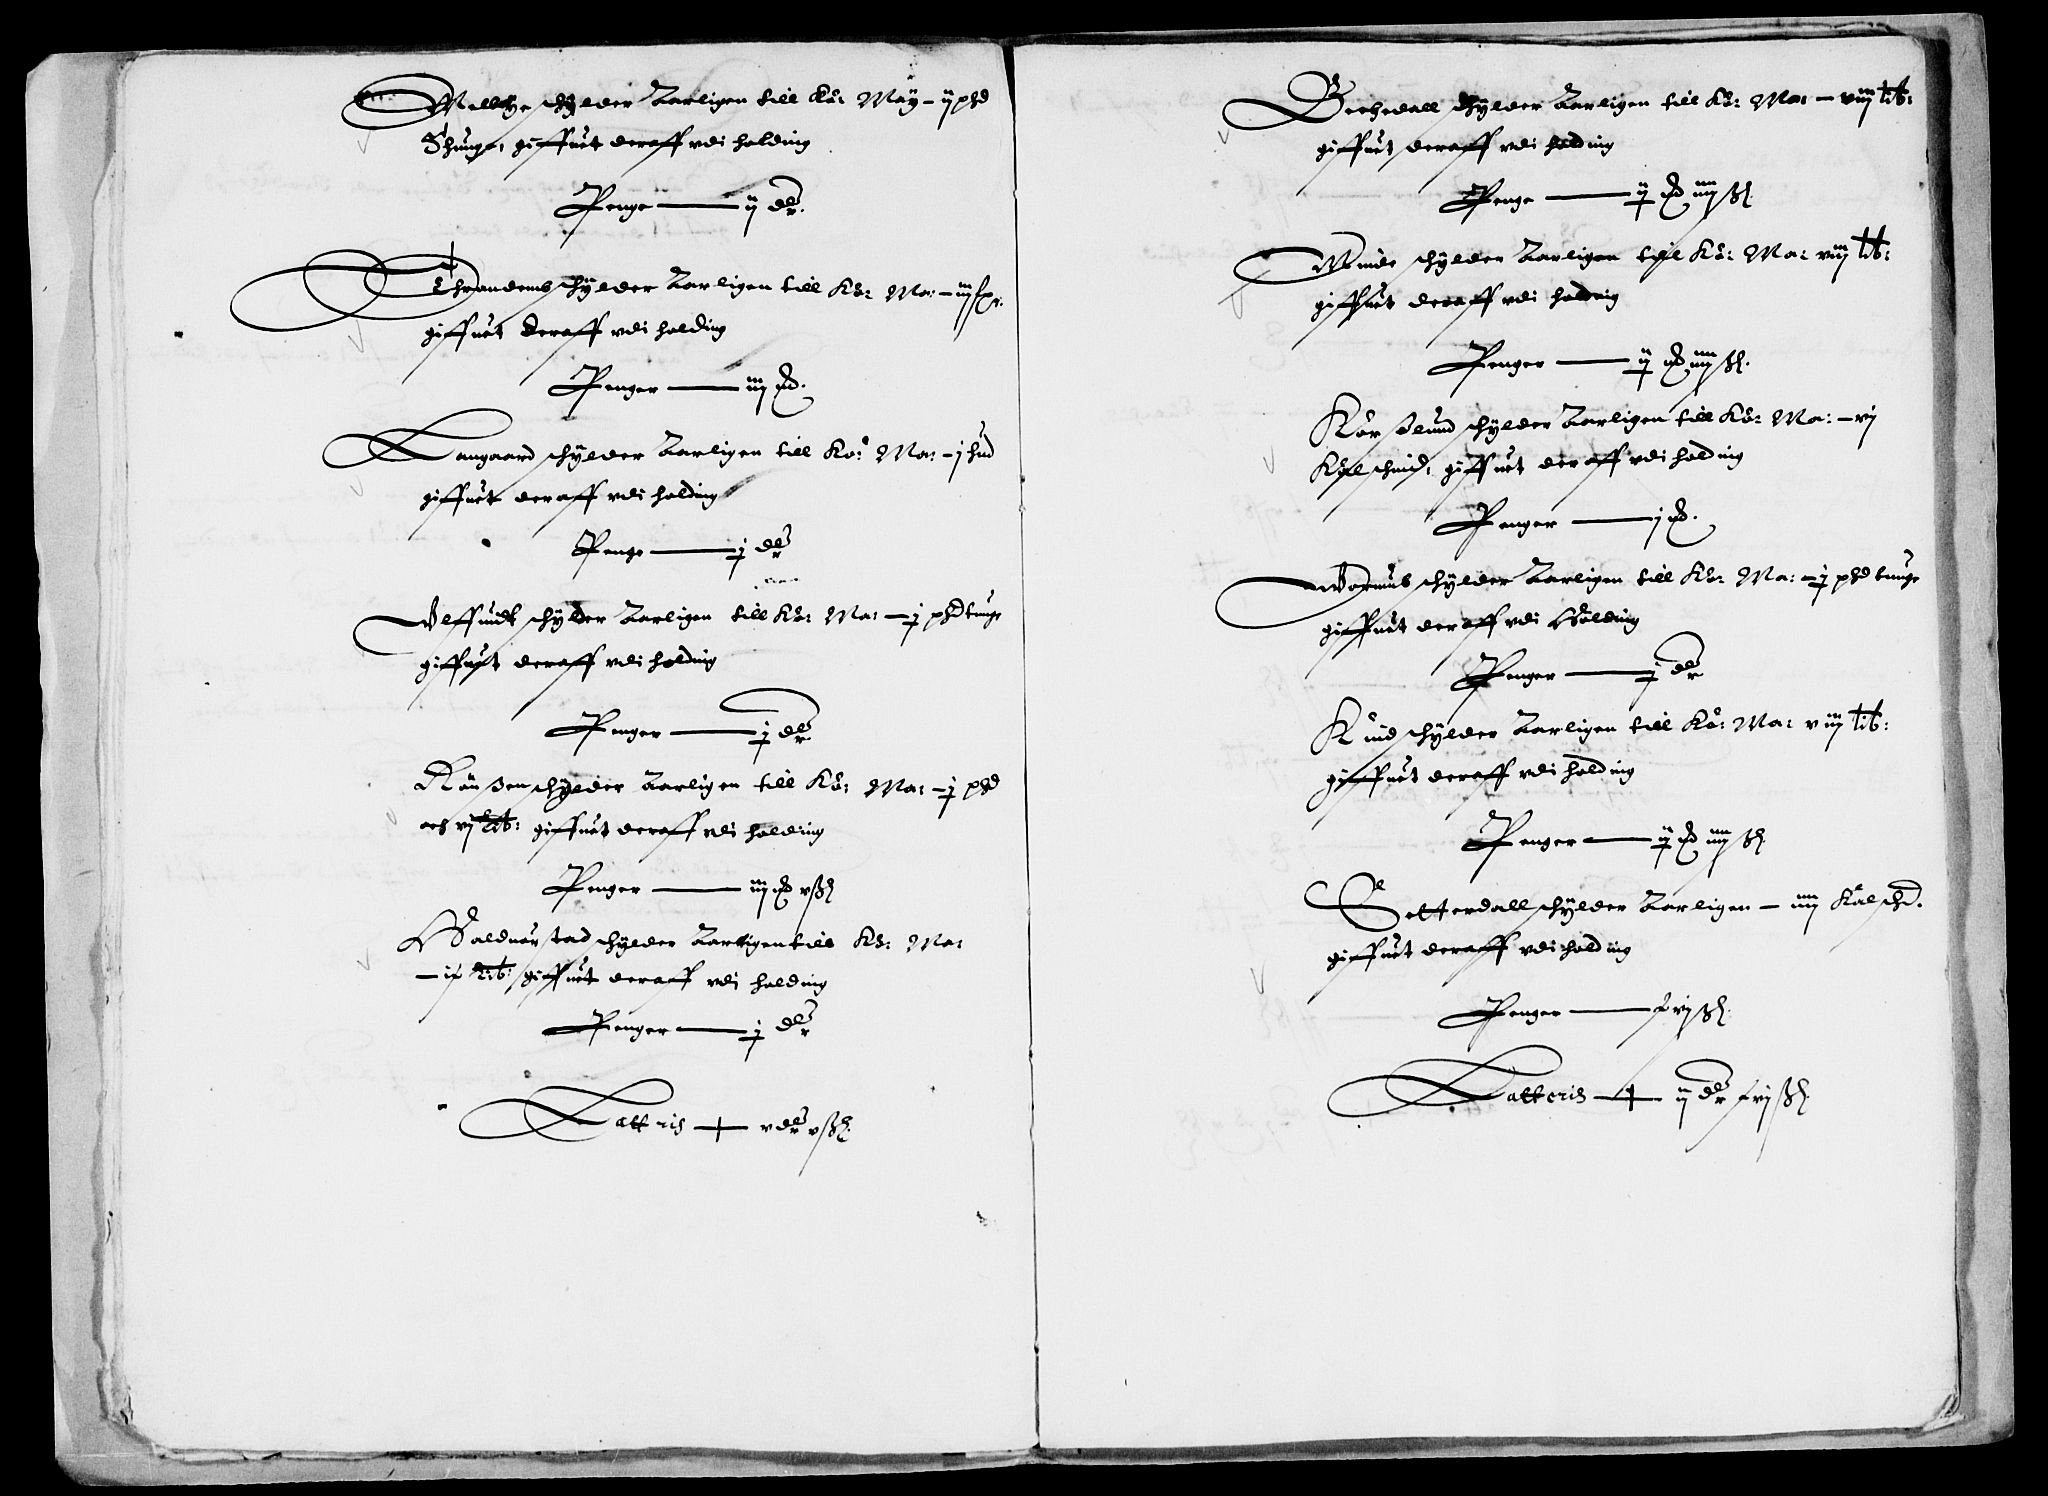 Melbye schylder Aarligen till Kö: May – ij phd
Thunge, giffuit deraff vdi holding
Penge — ij dlr.
Throndemb schylder Aarligen till Kö: Ma: – iij
giffuit deraff vdi holding
Penger — iiij
Langaard schylder Aarligen till Kö: Ma: – j hud
giffuit deraff vdi holding
Penge — j dlr
Vlffundt schylder Aarligen till Kö: Ma: – j phd tunge
giffuit deraff vdi holding
Penger — j dlr
Röußen schylder Aarligen till Kö: Ma: – j phd
och vj lib: giffuit deraff vdi holding
Penger — iij v ß
Holdnörstad schylder Aarligen till Kö: Ma:
– lib: giffuit deraff vdi holding
Penger — j dlr
Latteris — v dlr v ß
Bechedall schylder Aarligen till Kö: Ma: – viij lib:
giffuit deraff vdi holding
Penge — ij iiij ß
Minde schylder Aarligen till Kö: Ma: viij lib:
giffuit deraff vdi holding
Penger — ij iiij ß.
Körßlund schylder Aarligen till Kö: Ma: – vj
Kalschind, giffuit deraff vdi holding
Penger — j
Wormüb schylder Aarligen till Kö: Ma: – j phd tunge
giffuit deraff vdi Holding
Penger — j dlr
Kind schylder Aarligen till Kö: Ma: viij lib:
giffuit deraff vdi holding
Penger — ij iiij ß
Setterdall schylder Aarligen – iiij Kalschd.
giffuit deraff vdi holding
Penger — xvj ß
Latteris — ij dlr xvj ß